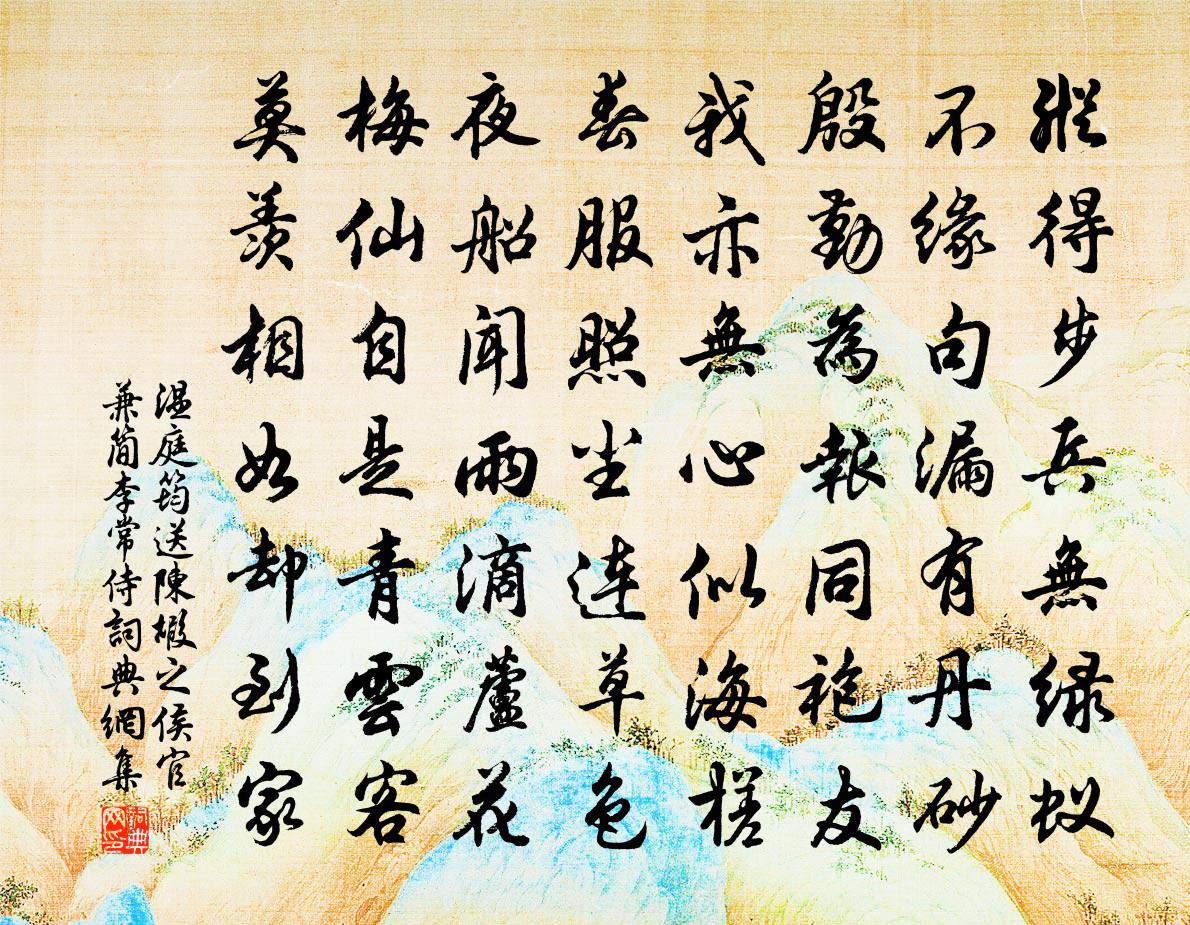 縱得步兵無綠蟻
不緣句漏有丹砂
殷勤為報同袍友
我亦無心似海槎
春服照塵連草色
夜船聞雨滴蘆花
梅仙自是青雲客
莫羨相如却到家
溫庭筠送陳嘏之侯官
兼簡李常侍詞典網集
詞典
网印